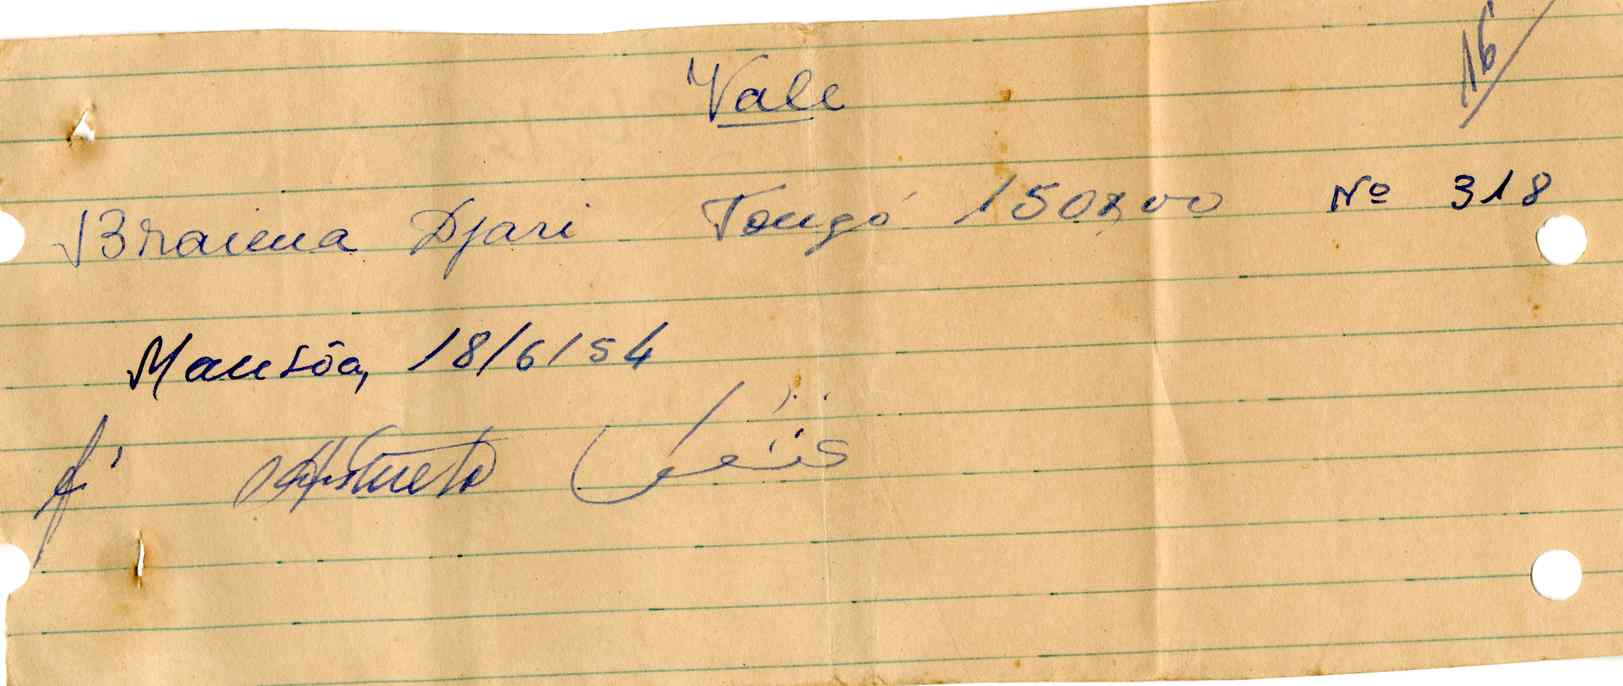 16/
Vale
Braima Djari Tongó 150$00 Nº 318
Mansôa, 18/6/54